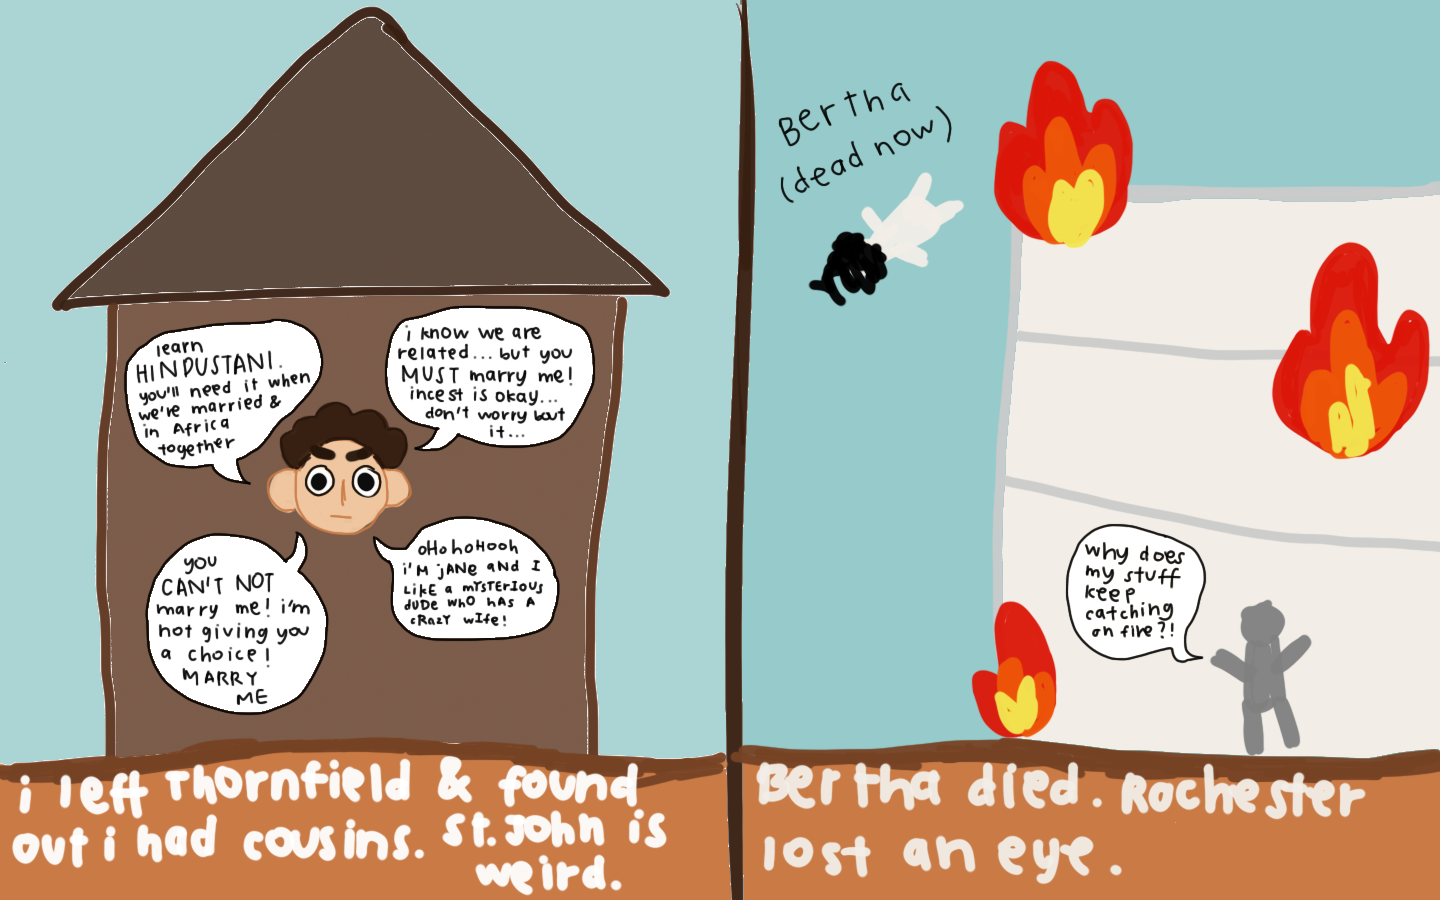 learn
HINDUSTANI.
you'll need it when
we're married &
in Africa
together
i know we are
related... but you
MUST marry me!
incest is okay...
don't worry bout
it...
you
CAN'T NOT
marry me! i'm
not giving you
a choice!
MARRY
ME
oHohoHooh
i'M jANe aNd I
LikE a mYSTERIOUS
dUDe wHO hAs A
cRazY wIfe!
i left Thornfield & found
out i had cousins. St. John is
weird.
Bertha
(dead now)
why does
my stuff
keep
catching
on fire?!
Bertha died. Rochester
lost an eye.